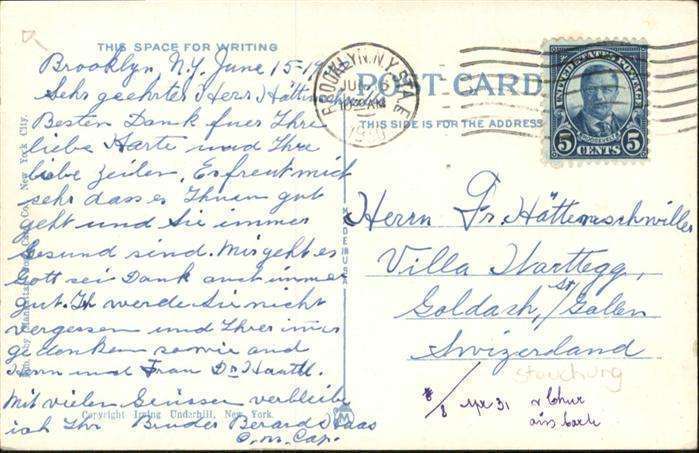 THIS SPACE FOR WRITING
Brooklyn N.Y. June 15-19
Sehr geehrter Herr Hättenschwiller
Besten Dank fuer Ihre
liebe Karte und Ihre
liebe Zeilen. Es freut mich
sehr dass es Ihnen gut
geht und Sie immer
Gesund sind. Mir geht es
Gott sei Dank auch immer
gut. Ich werde Sie nicht
vergessen und Ihrer immer
gedenken sowie and
Herrn und Frau Dr.
Mit vielen Grüssen verbleibe
ich Ihr Bruder Berard Haas
O.M.Cap.
Copyright Irving Underhill, New York.
New York City.
MADE IN USA
POST CARD
THIS SIDE IS FOR THE ADDRESS
BROOKLYN, N.Y.
JUN 16
UNITED STATES POSTAGE
ROOSEVELT
5 CENTS 5
Herrn Fr. Hättenschwiller
Villa Warttegg,
Goldach, St/Gallen
Swizerdland
8/8 31